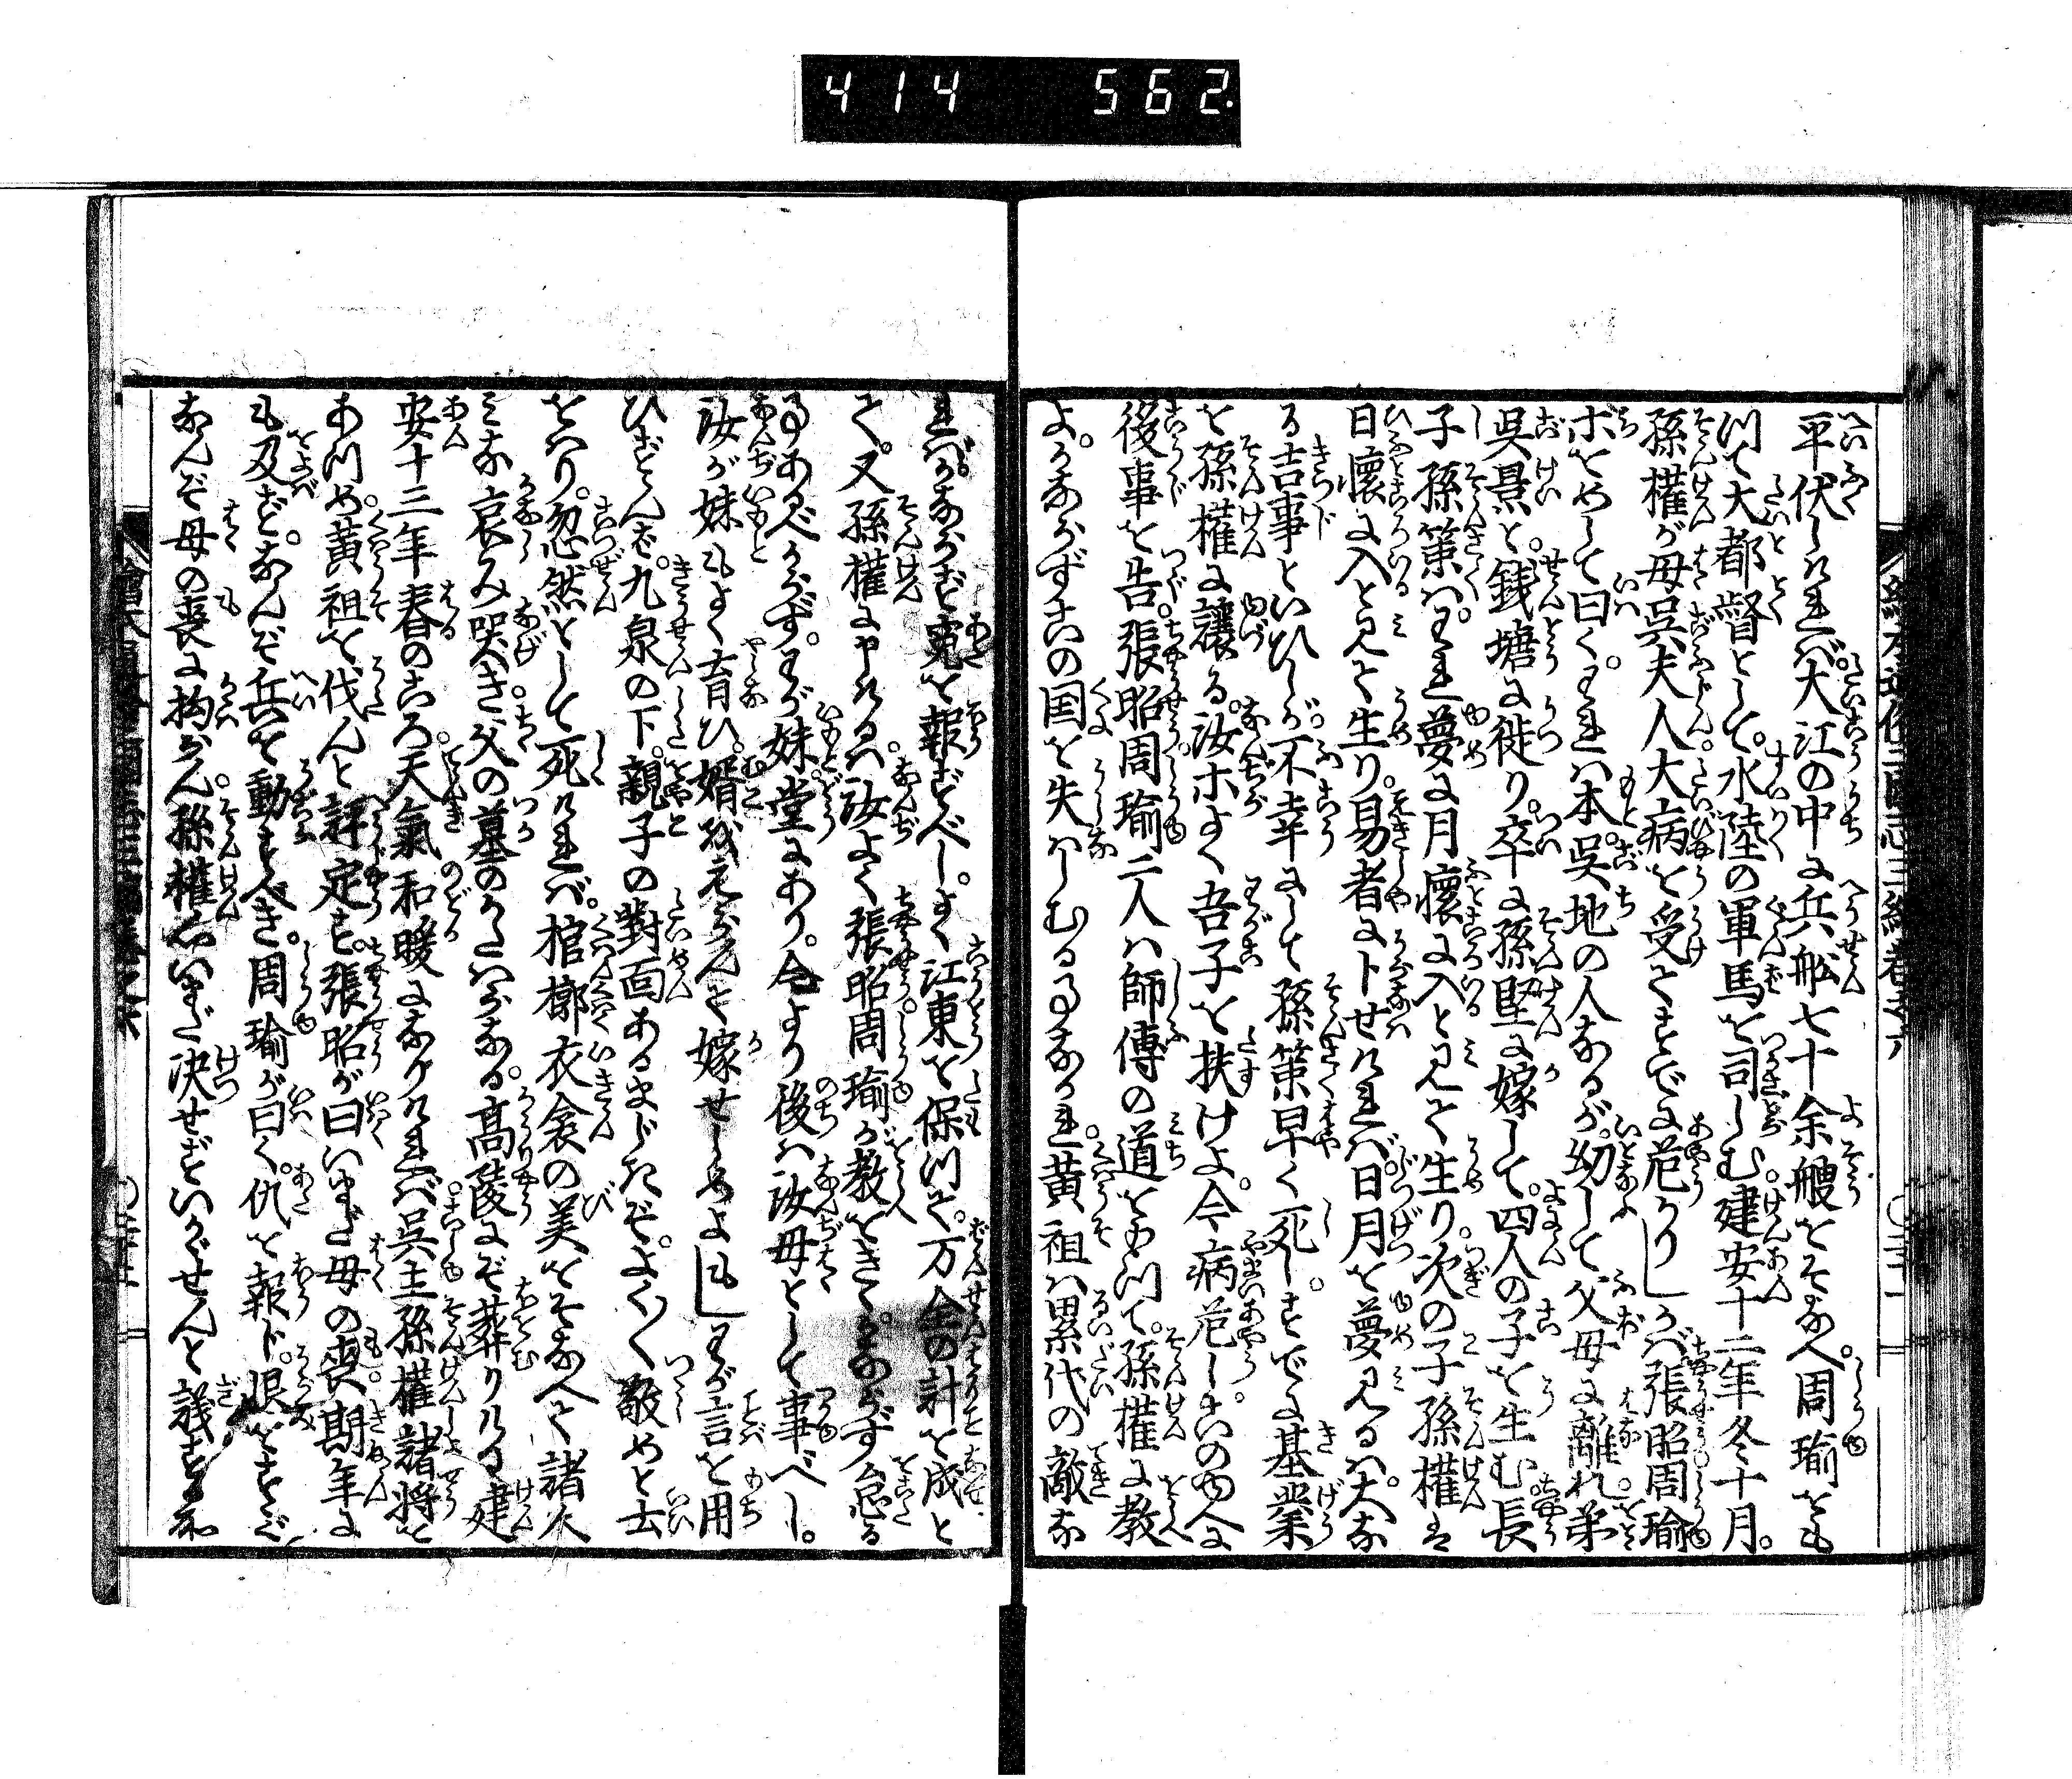 414 562
平伏しければ。大江の中に兵舩七十余艘をそなへ。周瑜をも
つて大都督として。水陸の軍馬を司しむ。建安十二年冬十月。
孫權が母呉夫人大病を受てすでに危かりしかば張昭周瑜
ホをめして曰く。われハ本呉地の人なるが。幼して父母に離れ弟
呉景と。銭塘に徙り。卒に孫堅に嫁して。四人の子を生む長
子孫策ハ。われ夢に月懐に入と見て生り。次の子孫權ハ
日懐に入と見て生り。易者に卜せければ。日月を夢見るハ。大な
る吉事といひしが。不幸にして孫策早く死し。すでに基業
を孫權に譲る。汝ホよく吾子を扶けよ。今病危し。この両人に
後事を告。張昭周瑜二人ハ師傅の道をもつて。孫權に教
よ。かならずこの国を失ハしむる事なかれ。黄祖ハ累代の敵な
れバ。かならず寃を報ずべし。よく江東を保つて。万全の計を成と
て。又孫權に申けるハ。汝よく張昭周瑜が教をきく。かならず怠る
事あるべからず。わが妹堂にあり。今より後ハ汝母として事べし。
汝が妹もよく育ひ。婿をえらんで嫁せしめよもしわが言を用
ひずんば。九泉の下。親子の對面あるまじきぞ。よく〳〵敬めと云
をハり。忽然として死ければ。棺槨衣衾の美をそなへて諸人
ミな哀み哭き。父の墓のかたハらなる。高陵にぞ葬りける建
安十三年春のころ。天氣和暖になりければ呉主孫權諸将を
あつめ。黄祖を伐んと評定す。張昭が曰いまだ母の喪期年に
も及ず。なんぞ兵を動すべき。周瑜が曰く。仇を報ド。恨をすゝぐ
なんぞ母の喪に拘らん。孫權心いまだ決せずいかゞせんと議する処